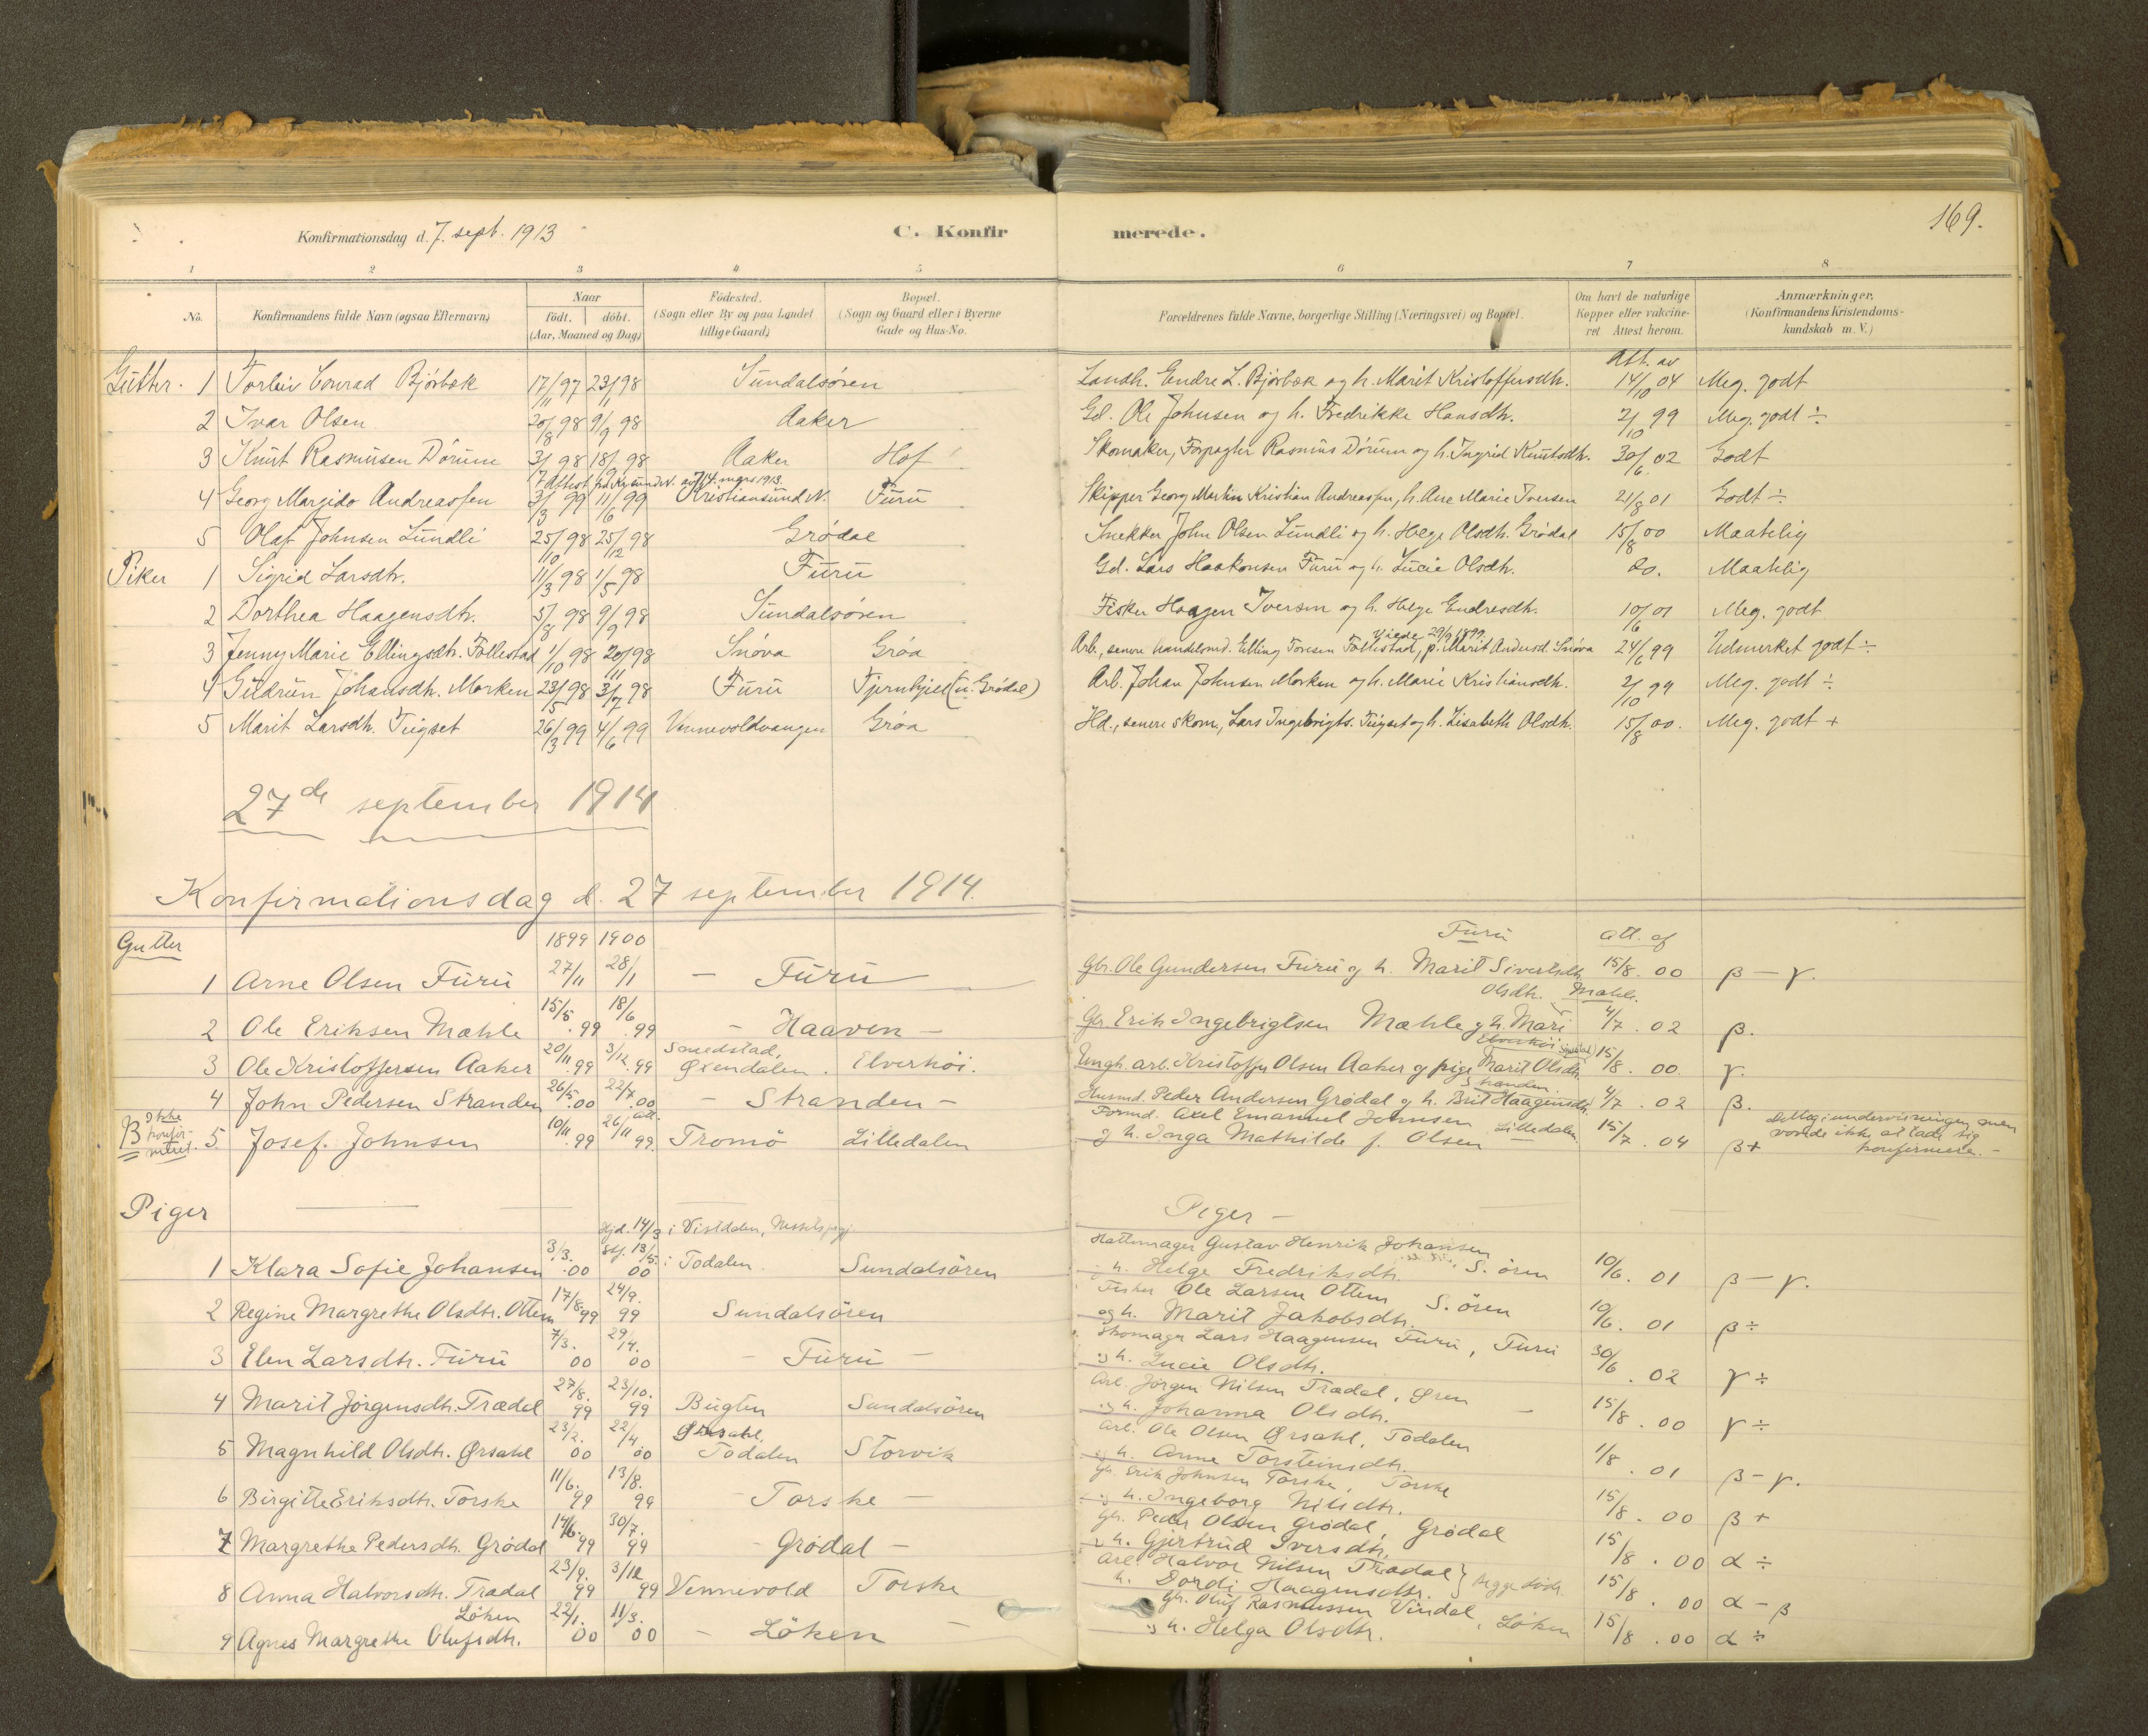 169.
Konfirmationsdag d. 7. sept. 1913 C. Konfirmerede.
1 2 3 4 5 6 7 8
No. Konfirmandens fulde Navn (ogsaa Efternavn) Naar født. døbt. (Aar, Maaned og Dag) Fødested. (Sogn eller By og paa Landet tillige Gaard) Bopæl. (Sogn og Gaard eller i Byerne Gade og Hus-No. Forældrenes fulde Navne, borgerlige Stilling (Næringsvei) og Bopæl. Om havt de naturlige Kopper eller vakcineret Attest herom. Anmærkninger. (Konfirmandens Kristendomskundskab m. V.)
Att. av
Gutter. 1 Torleiv Conrad Bjørbæk 17/11 97 23/1 98 Sundalsøren Landh. Endre L. Bjørbæk og h. Marit Kristoffersdtr. 14/10 04 Meg. godt
2 Ivar Olsen 20/8 98 9/9 98 Aaker Gd. Ole Johnsen og h. Fredrikke Hansdtr. 2/10 99 Meg. godt ÷
3 Knut Rasmusen Dørum 3/7 98 18/9 98 Aaker Hof Skomaker, Forpagter Rasmus Dørum og h. Ingrid Knutsdtr. 30/6 02 Godt
Attest fra Kr.sund N. av 14. mars 1913.
4 Georg Margido Andreassen 3/3 99 11/6 99 Kristiansund N. Furu Skipper Georg Martin Kristian Andreassen, h. Ane Marie Iversen 21/8 01 Godt ÷
5 Olaf Johnsen Lundli 25/10 98 25/12 98 Grødal Snekker John Olsen Lundli og h. Helge Olsdtr. Grødal 15/8 00 Maatelig
Piker 1 Sigrid Larsdtr. 11/3 98 1/5 98 Furu Gd. Lars Haakonsen Furu og h. Lucie Olsdtr. do. Maatelig
2 Dorthea Haagensdtr. 5/8 98 9/9 98 Sundalsøren Fisker Haagen Iversen og h. Helge Endresdtr. 10/6 01 Meg. godt
viede 29/9 1899
3 Jenny Marie Ellingsdtr. Follestad 1/10 98 20/11 98 Snøva Grøa Arb., senere handelsmd. Elling Toresen Follestad, p. Marit Andersd. Snøva 24/6 99 Udmerket godt ÷
4 Gudrun Johansdtr. Morken 23/5 98 3/7 98 Furu Tjernhjiel (u. Grødal) Arb. Johan Johnsen Morken og h. Marie Kristiansdtr. 2/10 99 Meg. godt ÷
5 Marit Larsdtr. Tugset 26/3 99 4/6 99 Vennevoldvangen Grøa Hd., senere skom., Lars Ingebrigts. Tugset og h. Lisabeth Olsdtr. 15/8 00. Meg. godt +
27de september 1914
Konfirmationsdag d. 27 september 1914.
Gutter 1899 1900 Furu att. af
1 Arne Olsen Furu 27/11 28/1 — Furu Gbr. Ole Gundersen Furu og h. Marit Sivertsdtr. 15/8. 00 β — γ.
Olsdtr. Mæhle.
2 Ole Eriksen Mæhle 15/5 .99 18/6 .99 — Haaven — Gbr. Erik Ingebrigtsen Mæhle og h. Mari 4/7. 02 β.
3 Ole Kristoffersen Aaker 20/11 .99 3/12 .99 Smedstad, Øxendalen. Elverhöi. Ungk. arb. Kristoffer Olsen Aaker og pige Marit Olsdtr. 15/8. 00. γ.
Stranden.
4 John Pedersen Stranden 26/5 .00 22/7 .00 — Stranden — Husmd. Peder Andersen Grødal og h. Brit Haagensdtr. 4/7. 02 β.
B Ikke konfirmeret. 5. Josef Johnsen 10/11 .99 att. 26/11 99. Tromö Lilledalen Formd. Axel Emanuel Johnsen og h. Inga Mathilde f. Olsen Lilledalen 15/7. 04 β+ Deltog i undervisningen men vovede ikke at lade sig konfirmere. —
Piger Piger —
Hjd. 14/3 i Vistdalen, Nesset prgj.
1 Klara Sofie Johansen 3/3. .00 Stf. 13/5. 00 i Todalen Sundalsören Hattemager Gustav Henrik Johansen og h. Helge Fredriksdtr. S. ören 10/6. 01 β — γ.
2 Regine Margrethe Olsdtr. Ottem 17/8. 99 24/9. 99 Sundalsören Fisker Ole Larsen Ottem og h. Marit Jakobsdtr. S. ören 10/6. 01 β ÷
3 Elen Larsdtr. Furu 7/3. 00 29/4. 00 — Furu — Skomager Lars Haagensen Furu, Furu og h. Lucie Olsdtr. 30/6. 02 γ ÷
4 Marit Jörgensdtr. Trædal 27/8. 99 23/10. 99 Bugten Sundalsören Arb. Jörgen Nilsen Trædal, Øren og h. Johanna Olsdtr. 15/8. 00 γ ÷
5 Magnhild Olsdtr. Ørsahl 23/2. 00 22/4 00 Ørsahl, Todalen Storvik Arb. Ole Olsen Ørsahl, Todalen og h. Anne Torsteinsdtr. 1/8. 01 β — γ.
6 Birgitte Eriksdtr. Torske 11/6. 99 13/8. 99 — Torske — Gbr. Erik Johnsen Torske, Torske og h. Ingeborg Nilsdtr. 15/8. 00 β +
7 Margrethe Pedersdtr. Grödal 14/6. 99 30/7. 99 — Grödal — Gbr. Peder Olsen Grödal, Grödal og h. Gjertrud Iversdtr. 15/8. 00 α ÷
8 Anna Halvorsdtr. Trædal 23/9. 99 3/12 99 Vennevold Torske Arb. Halvor Nilsen Trædal h. Dordi Haagensdtr. } begge døde. 15/8. 00 α — β
9 Agnes Margrethe Olufsdtr. Löken 22/1. 00 11/3. 00 — Löken — Gbr. Oluf Rasmussen Vindal, Löken og h. Helga Olsdtr. 15/8. 00 α ÷